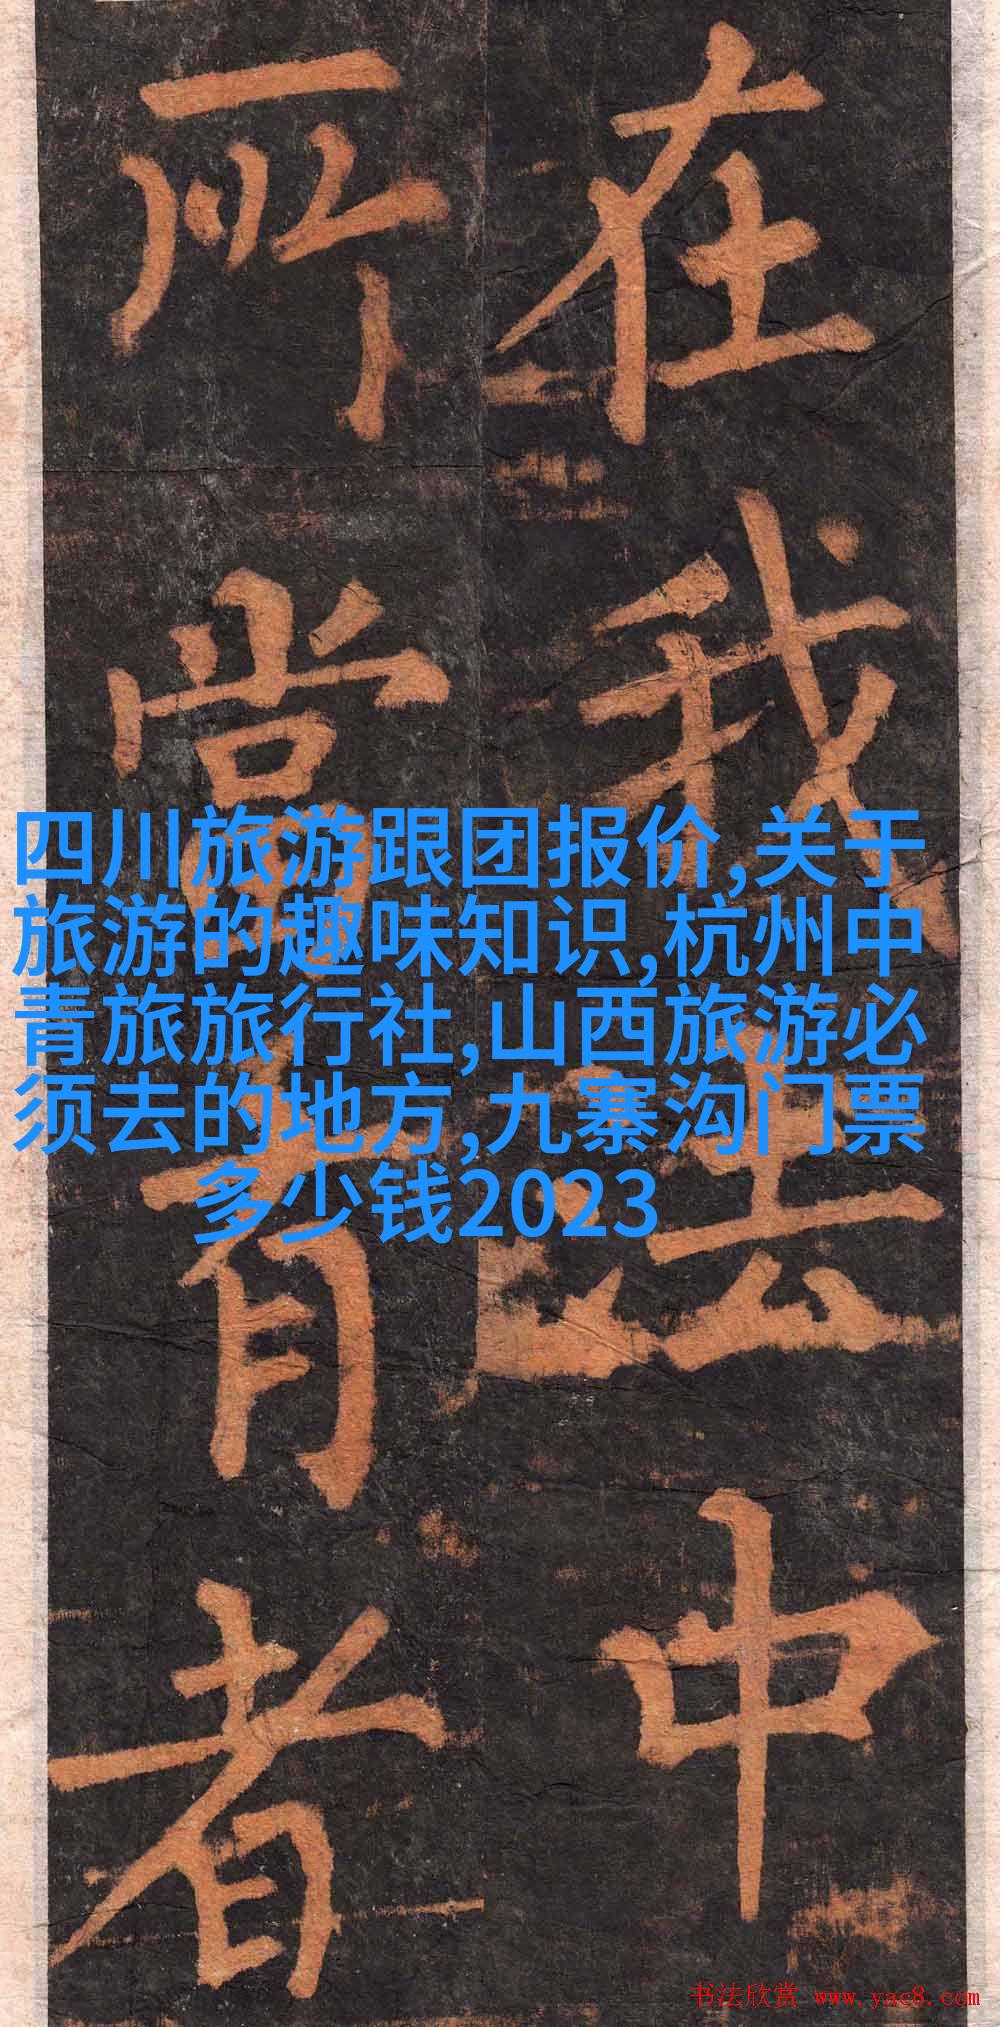 在我法中
所當有者
四川旅游跟团报价,关于
旅游的趣味知识,杭州中
青旅旅行社,山西旅游必
须去的地方,九寨沟门票
多少钱2023
书法欣赏 www.yac8.com